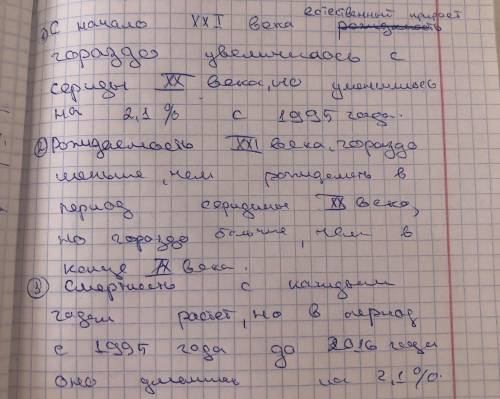 естественный прирост
1) С начало XXI века рождаемость
гораздо увеличилось с
сериды XX века, но уменилось
на 2,1 % с 1995 года.
2) Рождаемость XXI века, гораздо
меньше, чем рождаемть в
период серидины XX века,
но гораздо больше, чем в
конце XX века.
3) Смертность с каждым
годом растет, но в период
с 1995 года до 2016 года
оно на 2,1 %.